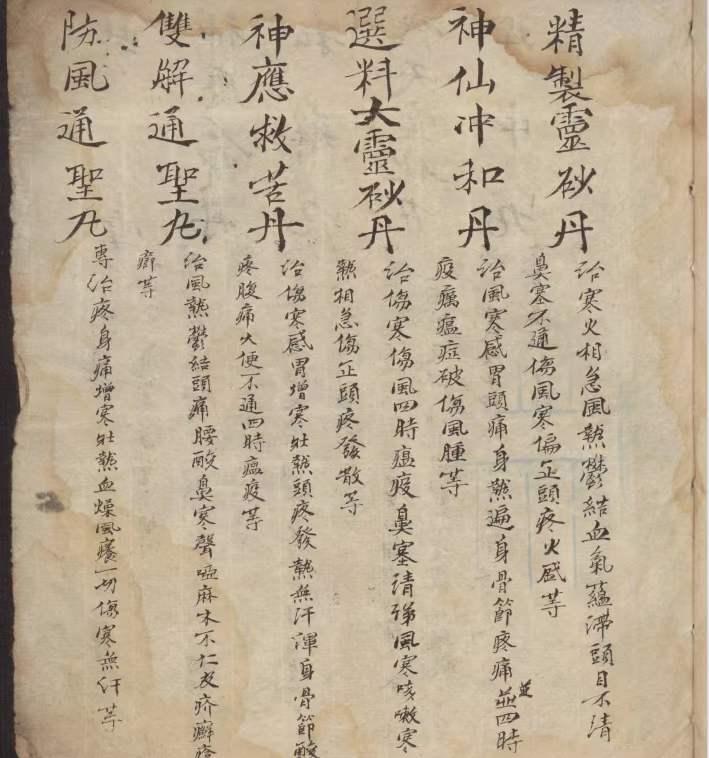 精製靈砂丹
治寒火相急風熱鬱結血氣蘊滯頭目不清
鼻塞不通傷風寒偏正頭疼火盛等
神仙冲和丹
治風寒感冒頭痛身熱遍身骨節疼痛並四時
疫癘瘟症破傷風腫等
選料大靈砂丹
治傷寒傷風四時瘟疫鼻塞清涕風寒咳嗽寒
熱相急傷正頭疼發散等
神應救苦丹
治傷寒感冒增寒壯熱頭疼發熱無汗渾身骨節酸
疼腹痛大便不通四時瘟疫等
雙解通聖丸
治風熱鬱結頭痛腰酸鼻寒聲啞麻木不仁皮疥癬瘡
癤等
防風通聖丸
專治疼身痛增寒壯熱血燥風癢一切傷寒無汗等